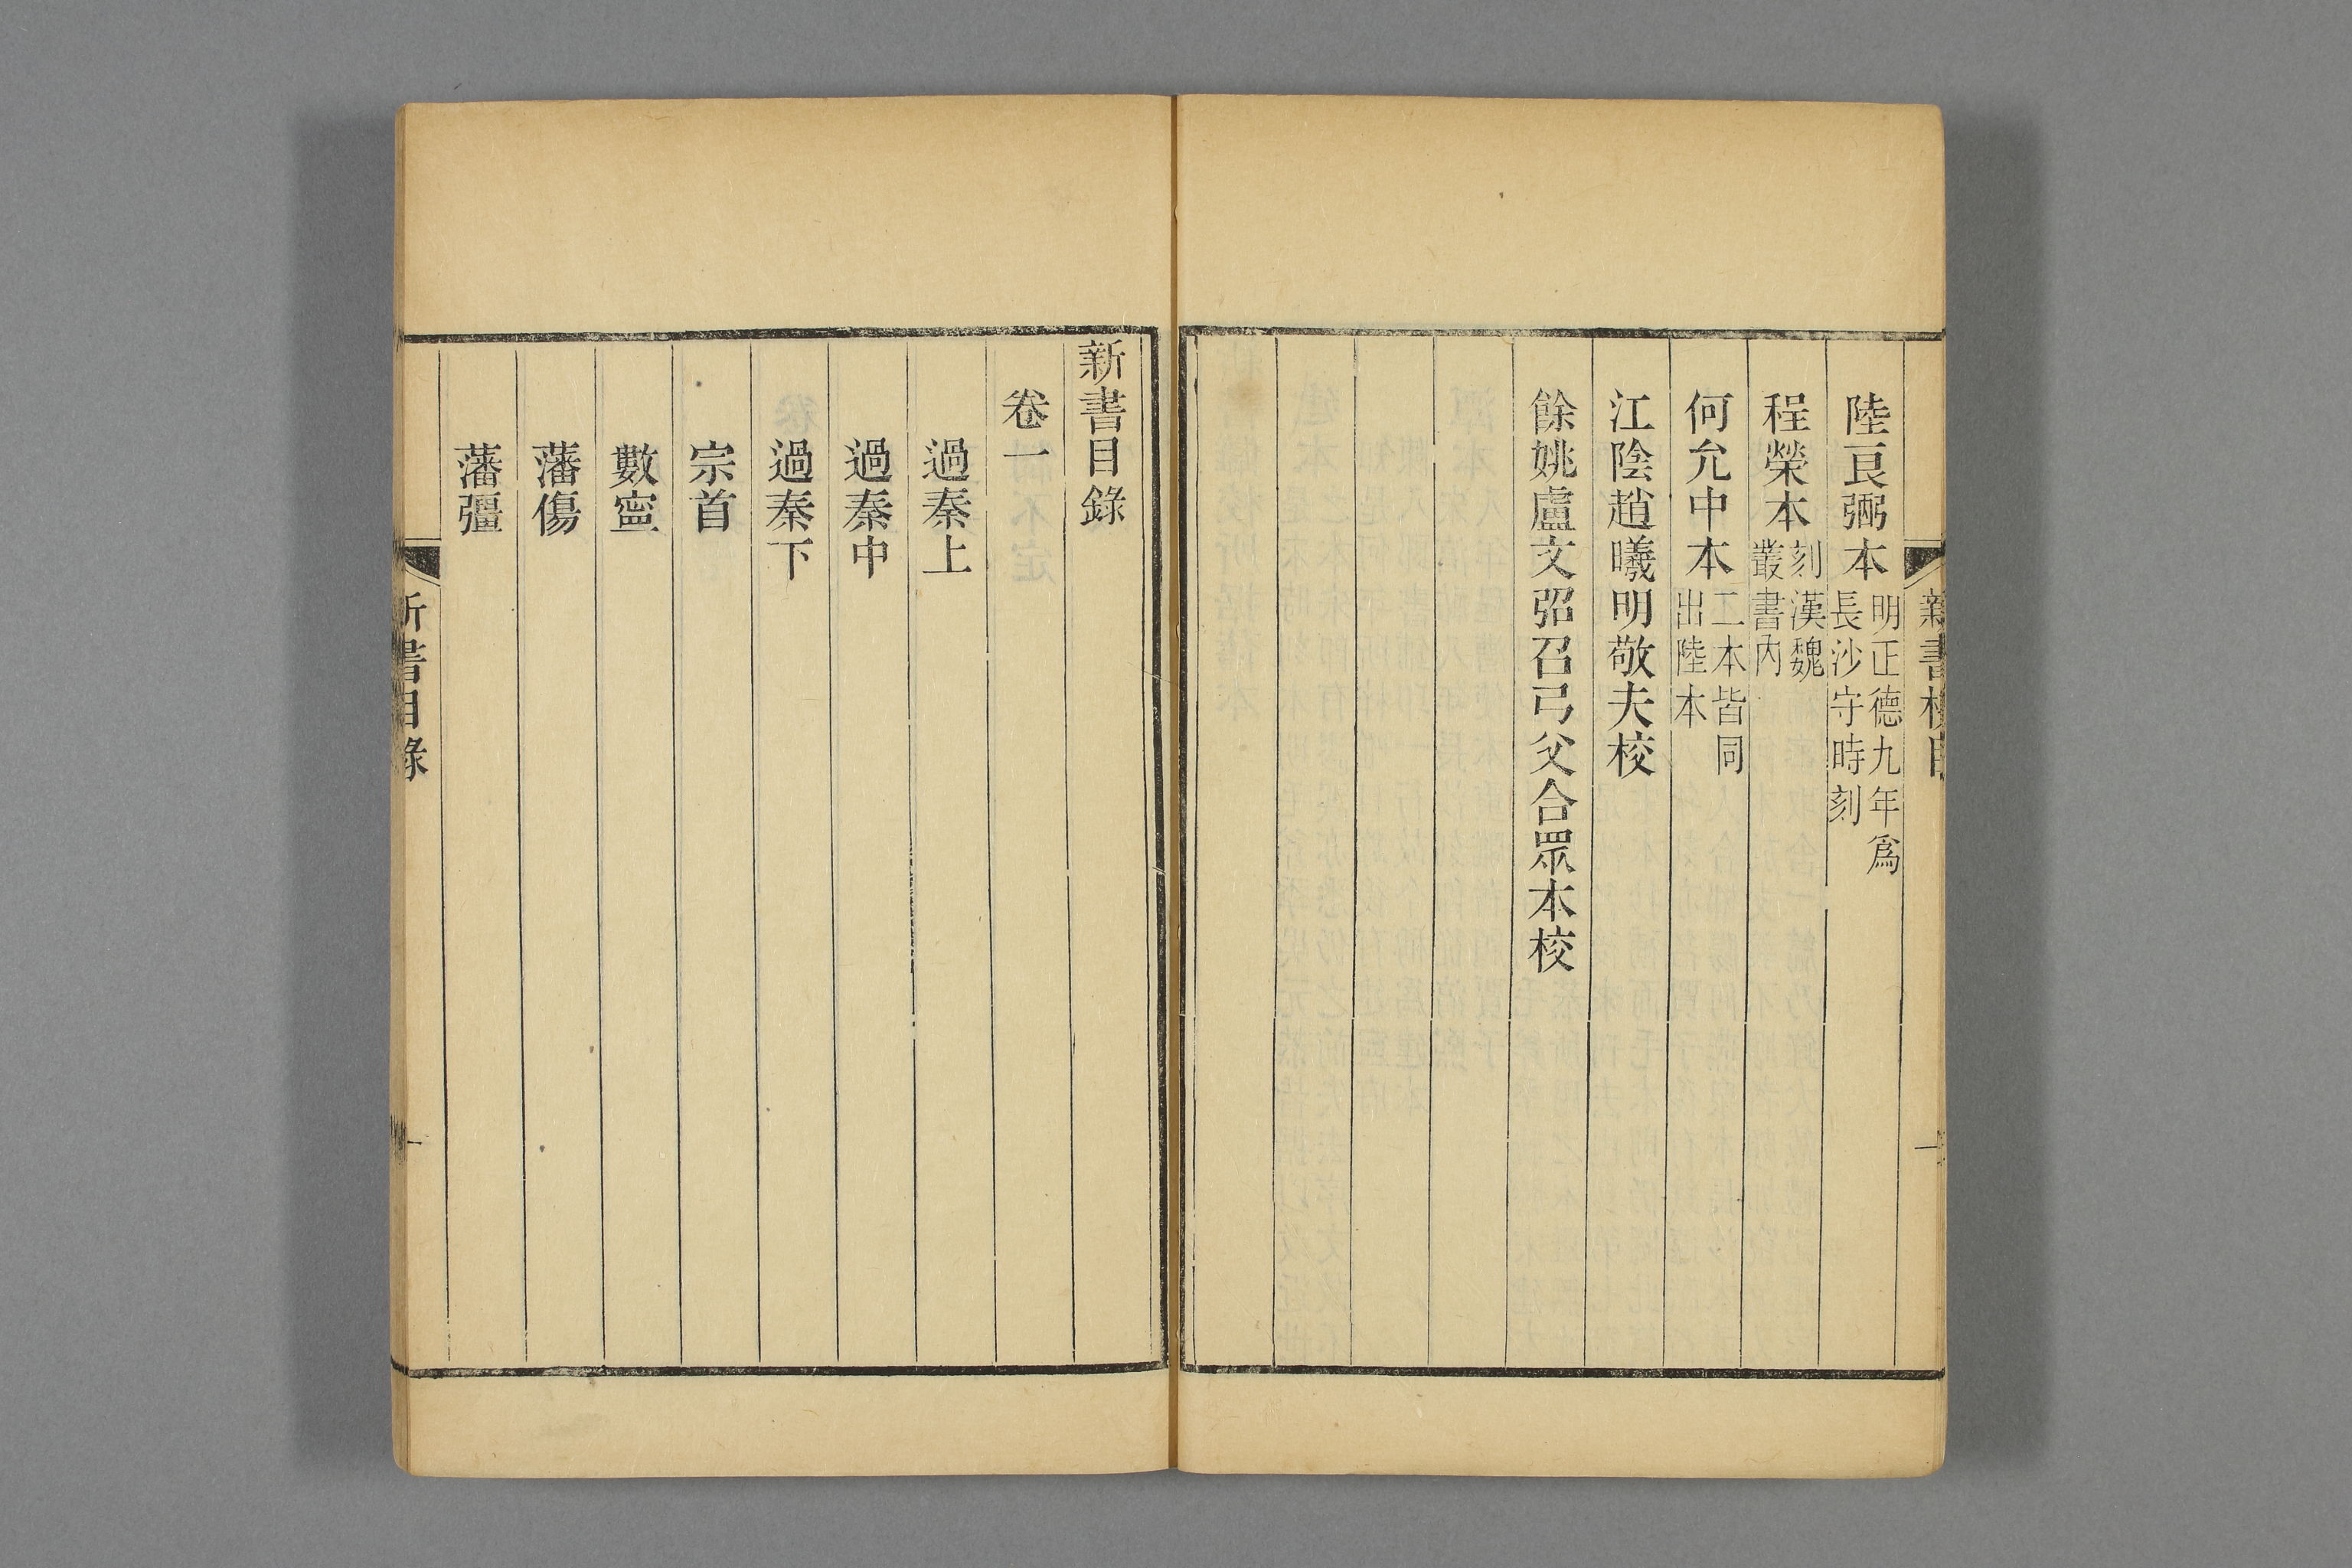 陸良弼本明正德九年爲長沙守時刻
程榮本刻漢魏叢書內
何允中本二本皆同出陸本
江陰趙曦明敬夫校
餘姚盧文弨召弓父合眾本校
新書目錄
卷一
過秦上
過秦中
過秦下
宗首
數寧
藩傷
藩彊
新書目錄
一